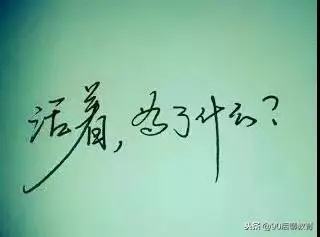 活着，为了什么？
头条@90后聊教育